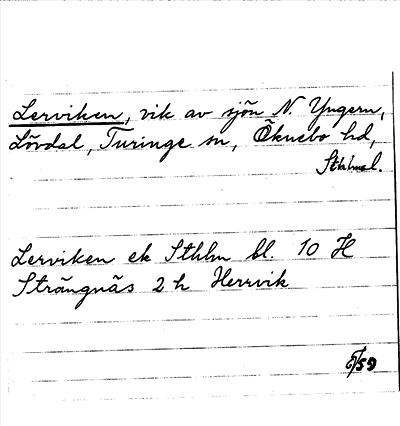 Lerviken, vik av sjön N. Yngern,
Lövdal, Turinge sn, Öknebo hd,
Sthlms l.
Lerviken ek Sthlm bl. 10 H
Strängnäs 2 h Herrvik
/59